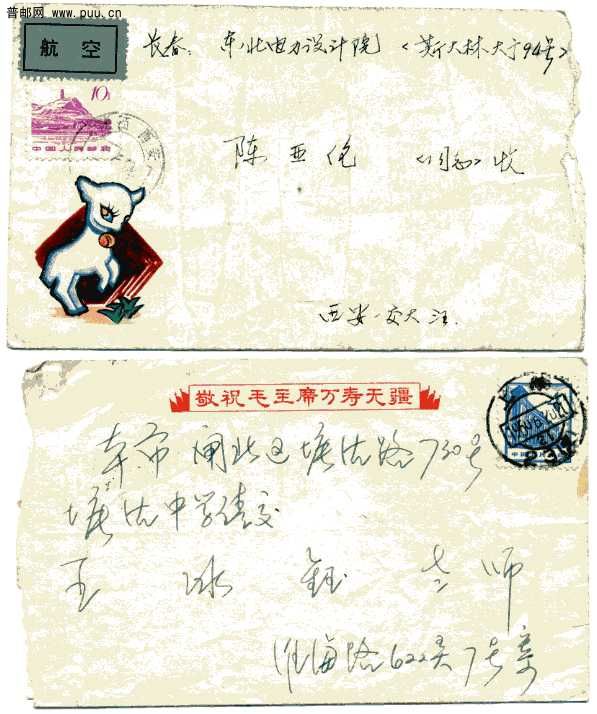 普邮网 www.puu.cn
航空
长春: 东北电力设计院 (斯大林大于94号)
10分
中国人民邮政
陈亚伦 (同志) 收
西安-交大汪.
敬祝毛主席万寿无疆
本市 闸北区 塘沽路730号
塘沽中学请交
王 冰 钰 老师
淮海路622弄7号寄